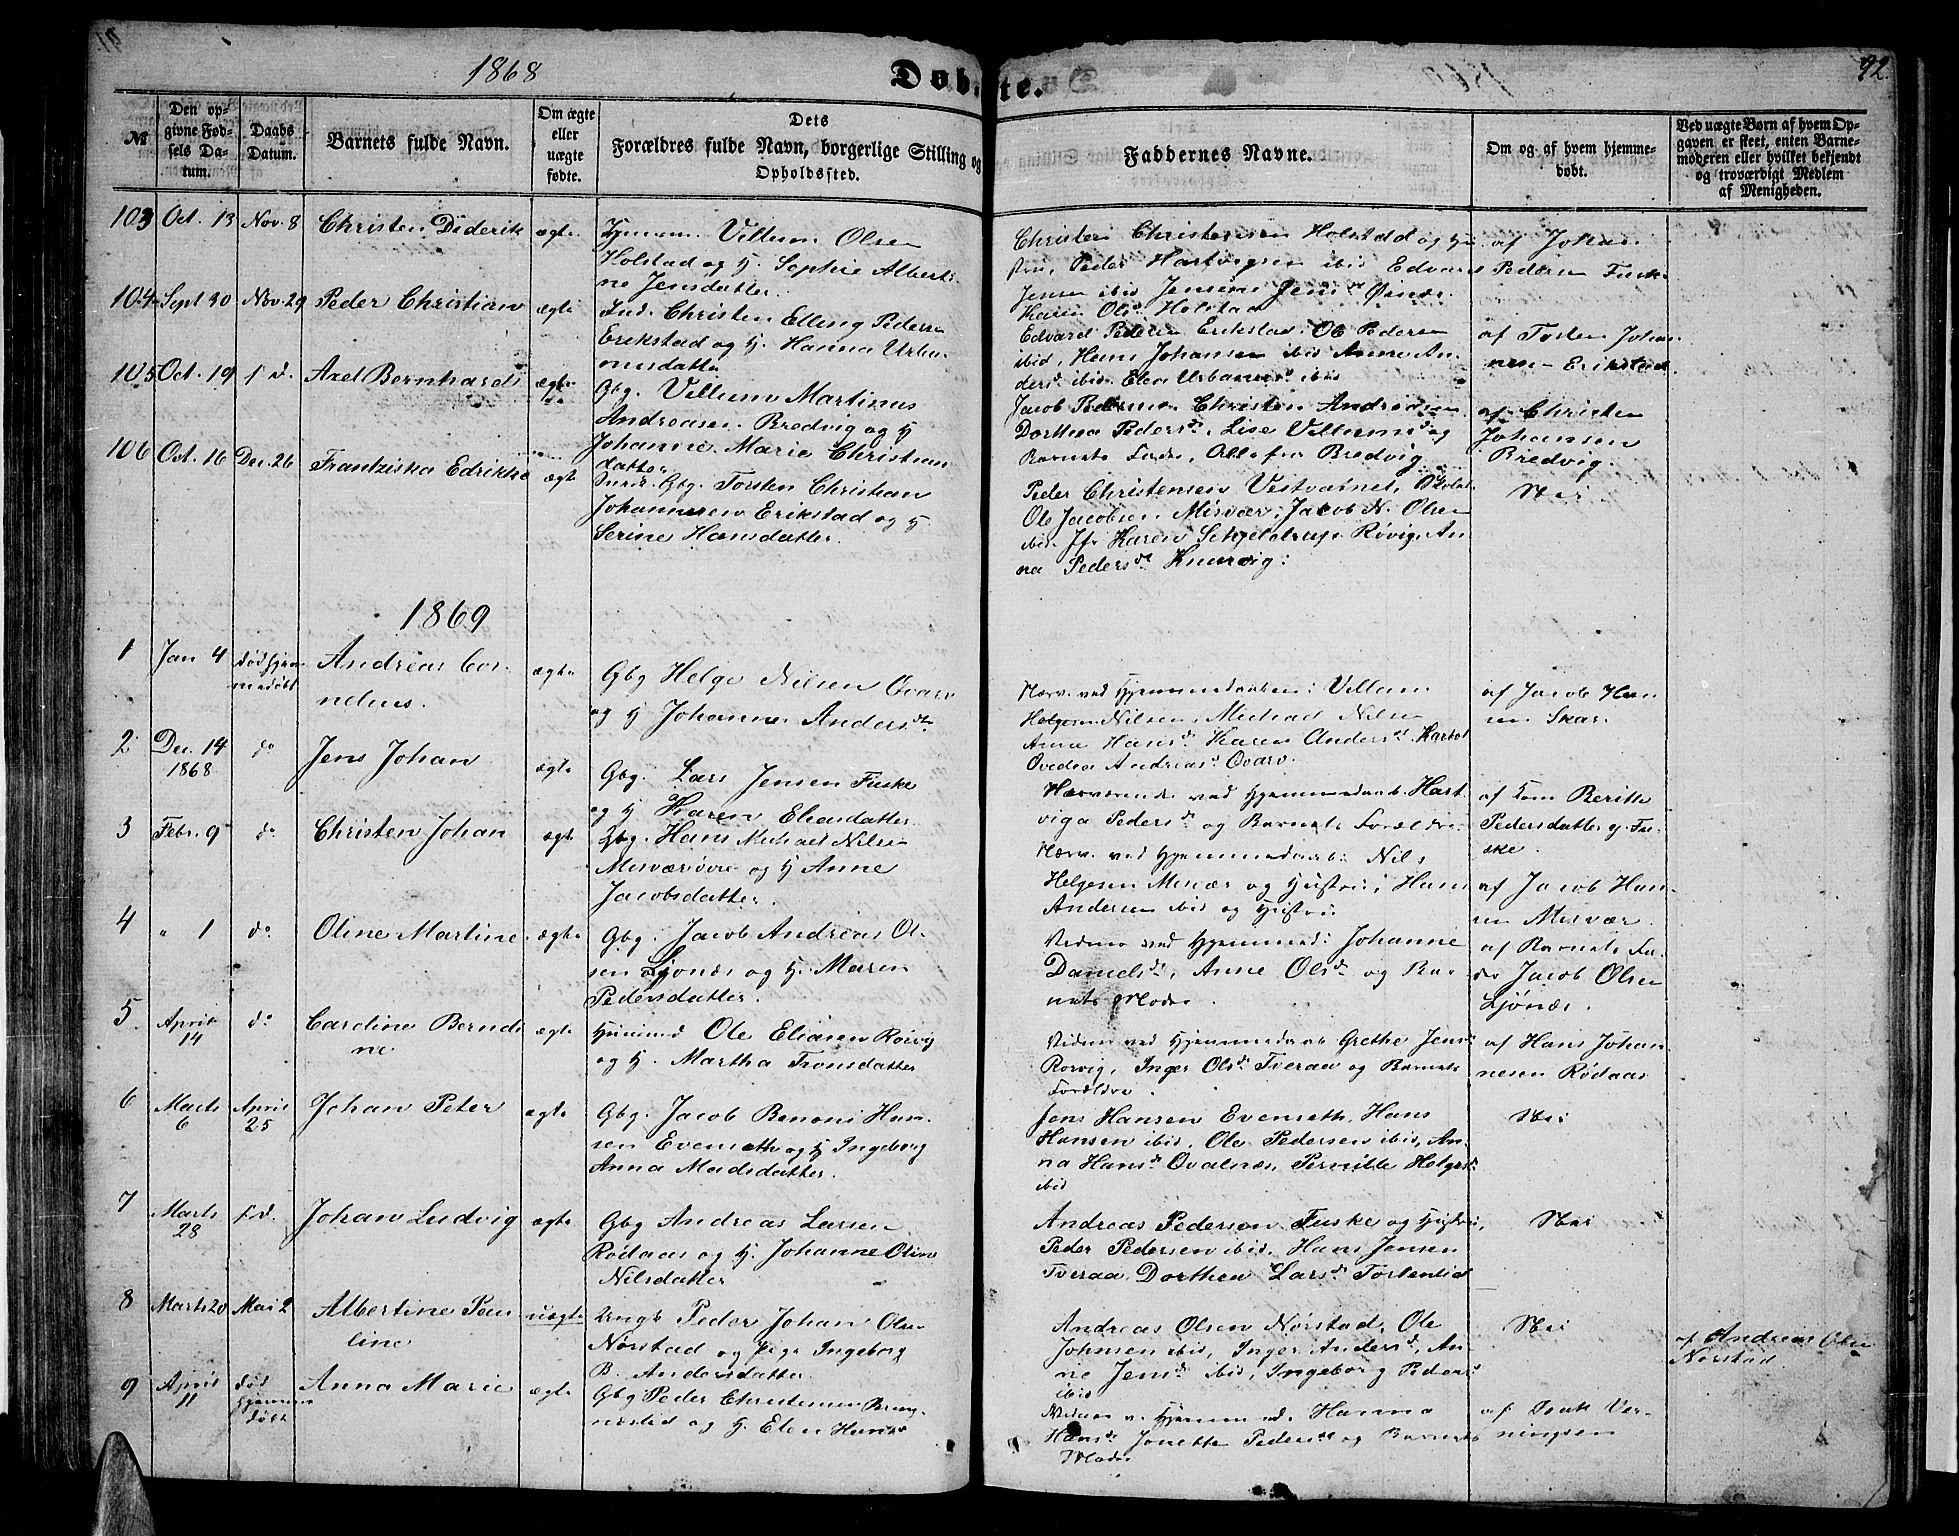 1868
Døbte.
92.
№
Den opgivne Fødsels Datum.
Daabs Datum.
Barnets fulde Navn.
Om ægte eller uægte fødte.
Dets Forældres fulde Navn, borgerlige Stilling og Opholdssted.
Faddernes Navne.
Om og af hvem hjemmedøbt.
Ved uægte Børn af hvem Opgaven er skeet, enten Barnemoderen eller hvilket bekjendt og troværdigt Medlem af Menigheden.
103 Oct. 13 Nov. 8 Christen Diderik ægte
Villum Olsen
Holstad og H. Sophie Alberti-
ne Jensdatter.
Christen Christensen Holstad og Hu-
stru, Peder Hartvigsen ibid Edvard
Jensen ibid Jensine Jensd. Øinæs
Karen Olsd. Holstad
af Johan
Pedersen Fuske
104 Sept 30 Nov. 29 Peder Christian ægte
Ind. Christen Elling Peders
Erikstad og H. Hanna Urba-
nusdatter
Edvard Pedersen Erikstad, Ole Pedersen
ibid, Hans Johansen ibid Anne An-
dersd. ibid. Elen Urbanusd. ibid
af Torsten Johan
nesen Erikstad
105 Oct. 19 s. d. Axel Bernhard ægte
Gbg. Villum Martinus
Andreasen Bredvig og H
Johanne Marie Christian
datter
Jacob Pedersen Christen Andreasen
Dorthea Pedersd. Lise Villumsd. og
Barnets Fader, Alle fra Bredvig
af Christen
Johansen
Bredvig.
106 Oct. 16 Dec. 26 Frantziska Edrikke ægte
Inder. Gbg. Torsten Christian
Johannesen Erikstad og H.
Serine Hansdatter.
Peder Christensen Vestvatnet,
Ole Jacobsen Misvær, Jacob N. Olsen
ibid. Jfr Karen Schjeldrup Røvig, An-
na Pedersd. Knarvig.
Nei
1869
1 Jan 4 død hjem-
medøbt
Andreas Cor-
nelius.
ægte
Gbg Helge Nilsen Qvarv
og H Johanne Andersdtr
Nærv. ved Hjemmedaaben: Villum
Helgesen Nilsen, Michael Nilsen
Anna Hansd. Karen Andersd. Karbøl
Ovedea Andreasd. Qvarv.
af Jacob Han
sen Skar.
2 Dec. 14
1868
do
Jens Johan ægte
Gbg. Lars Jensen Fuske
og H Karen Eliasdatter.
Nærværende ved Hjemmedaab. Hart-
viga Pedersd. og Barnets Forældre.
af Kone Berithe
Pedersdatter g. Fu-
ske.
3 Febr. 9 do Christen Johan ægte
Gbg. Hans Michael Nilsen
Misværsøre og H Anne
Jacobsdatter.
Nærv. ved Hjemmedaab: Nils
Helgesen Misvær og Hustru, Hans
Andersen ibid og Hustru.
af Jacob Han-
sen Misvær
4 " 1 do Oline Martine ægte
Gbg. Jacob Andreas Ol-
sen Ljønæs og H. Maren
Pedersdatter.
Vidner ved Hjemmed: Johanne
Danielsd., Anne Olsd. og Bar-
nets Moder.
af Barnets Fa-
der Jacob Olsen
Ljønæs.
5 April
14
do
Caroline Berndi
ne
ægte
Huusmd Ole Eliasen Rørvig
og H. Martha Tronsdatter
Vidner ved Hjemmedaab Grethe Jensd
Rørvig, Inger Olsd. Tveraa og Barnets
Forældre.
af Hans Johan
nesen Rødaas
6 Marts
6
April
25
Johan Peter ægte
Gbg. Jacob Benoni Han-
sen Evensæth og H Ingeborg
Anna Madsdatter.
Jens Hansen Evensæth, Hans
Hansen ibid, Ole Pedersen ibid, An-
na Hansd. Qvalnæs, Pernille Helgesd.
ibid
Nei
7 Marts
28
s. d.
Johan Ludvig ægte
Gbg Andreas Larsen
Rødaas og H. Johanne Oline
Nilsdatter
Andreas Pedersen Fuske og Hustru,
Peder Pedersen ibid, Hans Jensen
Tveraa, Dorthea Larsd. Torstenlid
Nei
8 Marts 20 Mai 2 Albertine Pau
line
uægte
Ungk Peder Johan Olsen
Nørstad og Pige Ingeborg
B. Andersdatter.
Andreas Olsen Nørstad, Ole
Johnsen ibid, Inger Andersd, An-
ne Jensd. ibid, Ingeborg Pedersd
ibid
Nei
af Andreas Olsen
Nørstad
9 April
11
død
hjemme
døbt
Anna Marie ægte
Gbg Peder Christensen Bring-
næslid og H. Elen Hansd
Vidner v. Hjemmed. Hanna
Hansd. Jonette Pedersd og Barnets
Moder
af Isak Ver-
ningsen